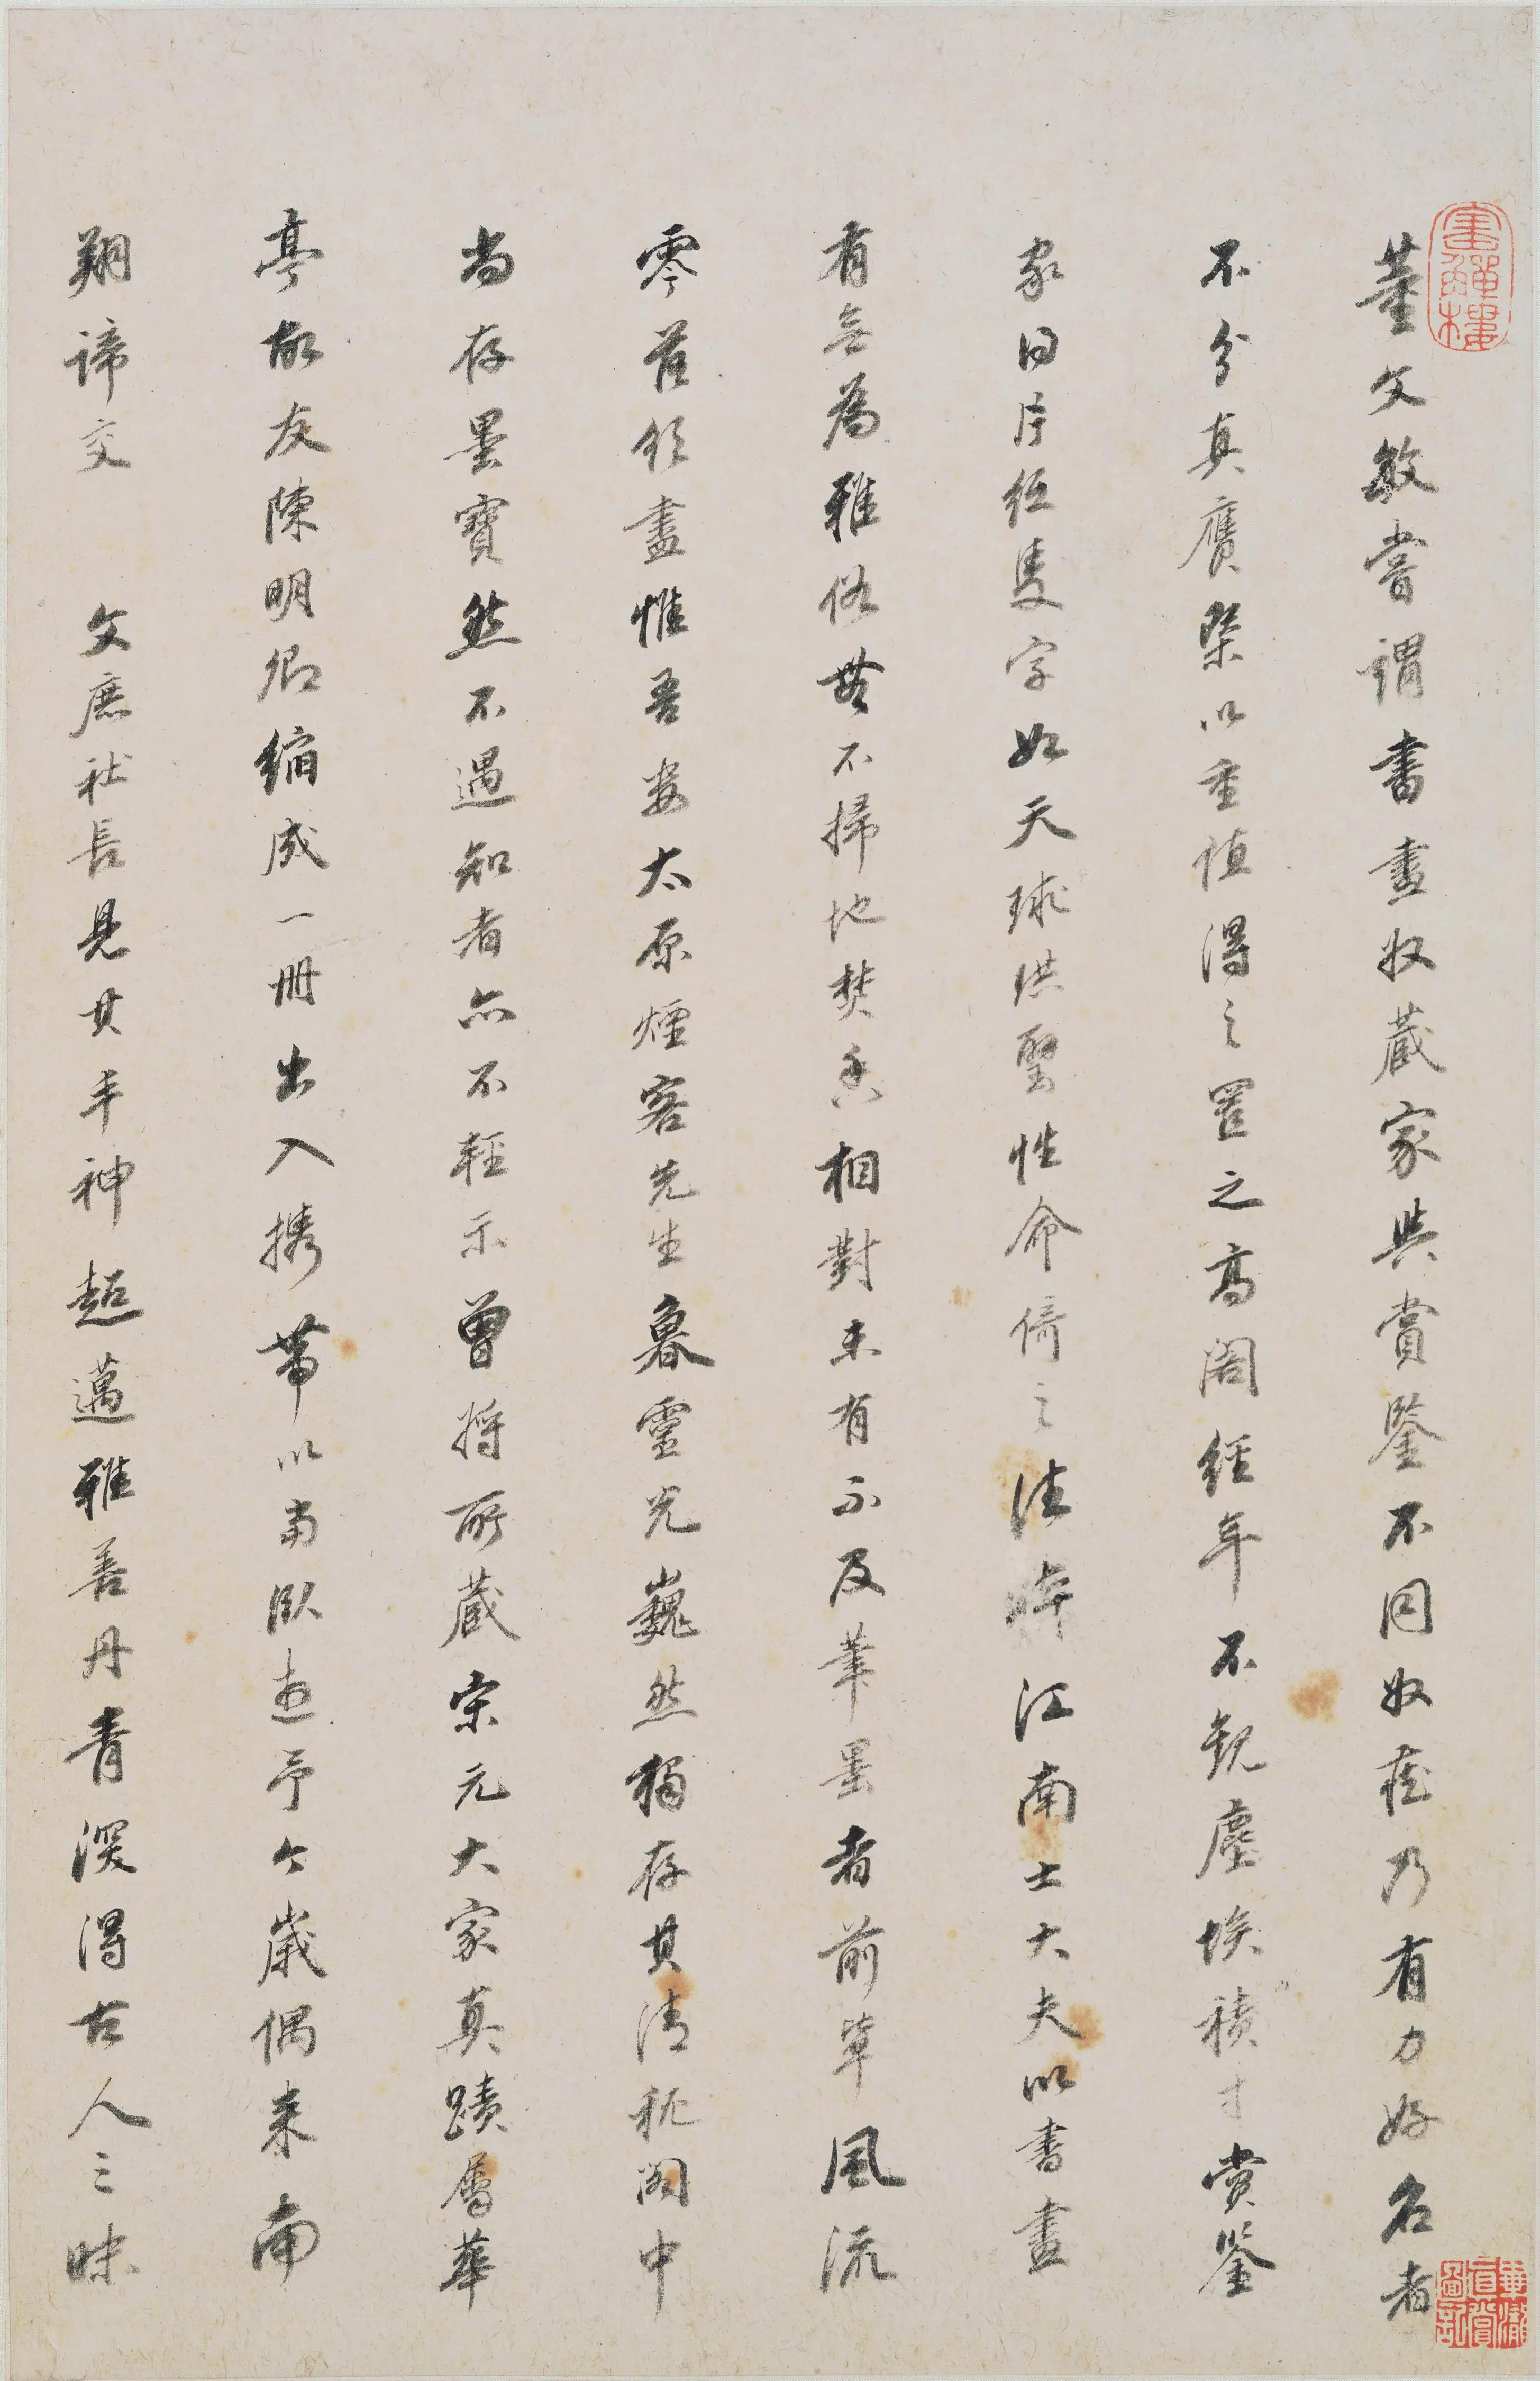 畫禪樓
董文敏嘗謂書畫收藏家與賞鑒不同收藏乃有力好名者
不分真贋槩以重值得之置之高閣經年不観塵埃積寸賞鑒
家曰片紙隻字如天球洪璧性命倚之法時江南士大夫以書畫
有無為雅俗無不掃地焚香相對未有不及筆墨者前輩風流
零落殆盡惟吾婁太原煙客先生魯靈光巍然獨存其清秘閣中
尚存墨寶然不遇知者亦不輕示曾將所藏宋元大家真蹟屬華
亭故友陳明卿縮成一冊出入攜帶以當臥遊予今歲偶来南
翔諦交 文庶社長見其丰神超邁雅善丹青深得古人三昧